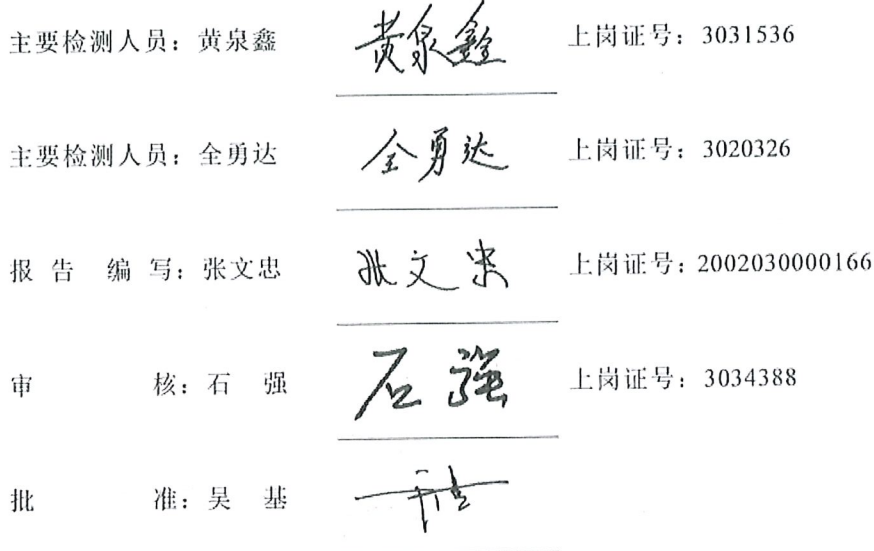 主要检测人员：黄泉鑫 黄泉鑫 上岗证号：3031536
主要检测人员：全勇达 全勇达 上岗证号：3020326
报告编写：张文忠 张文忠 上岗证号：2002030000166
审核：石强 石强 上岗证号：3034388
批准：吴基